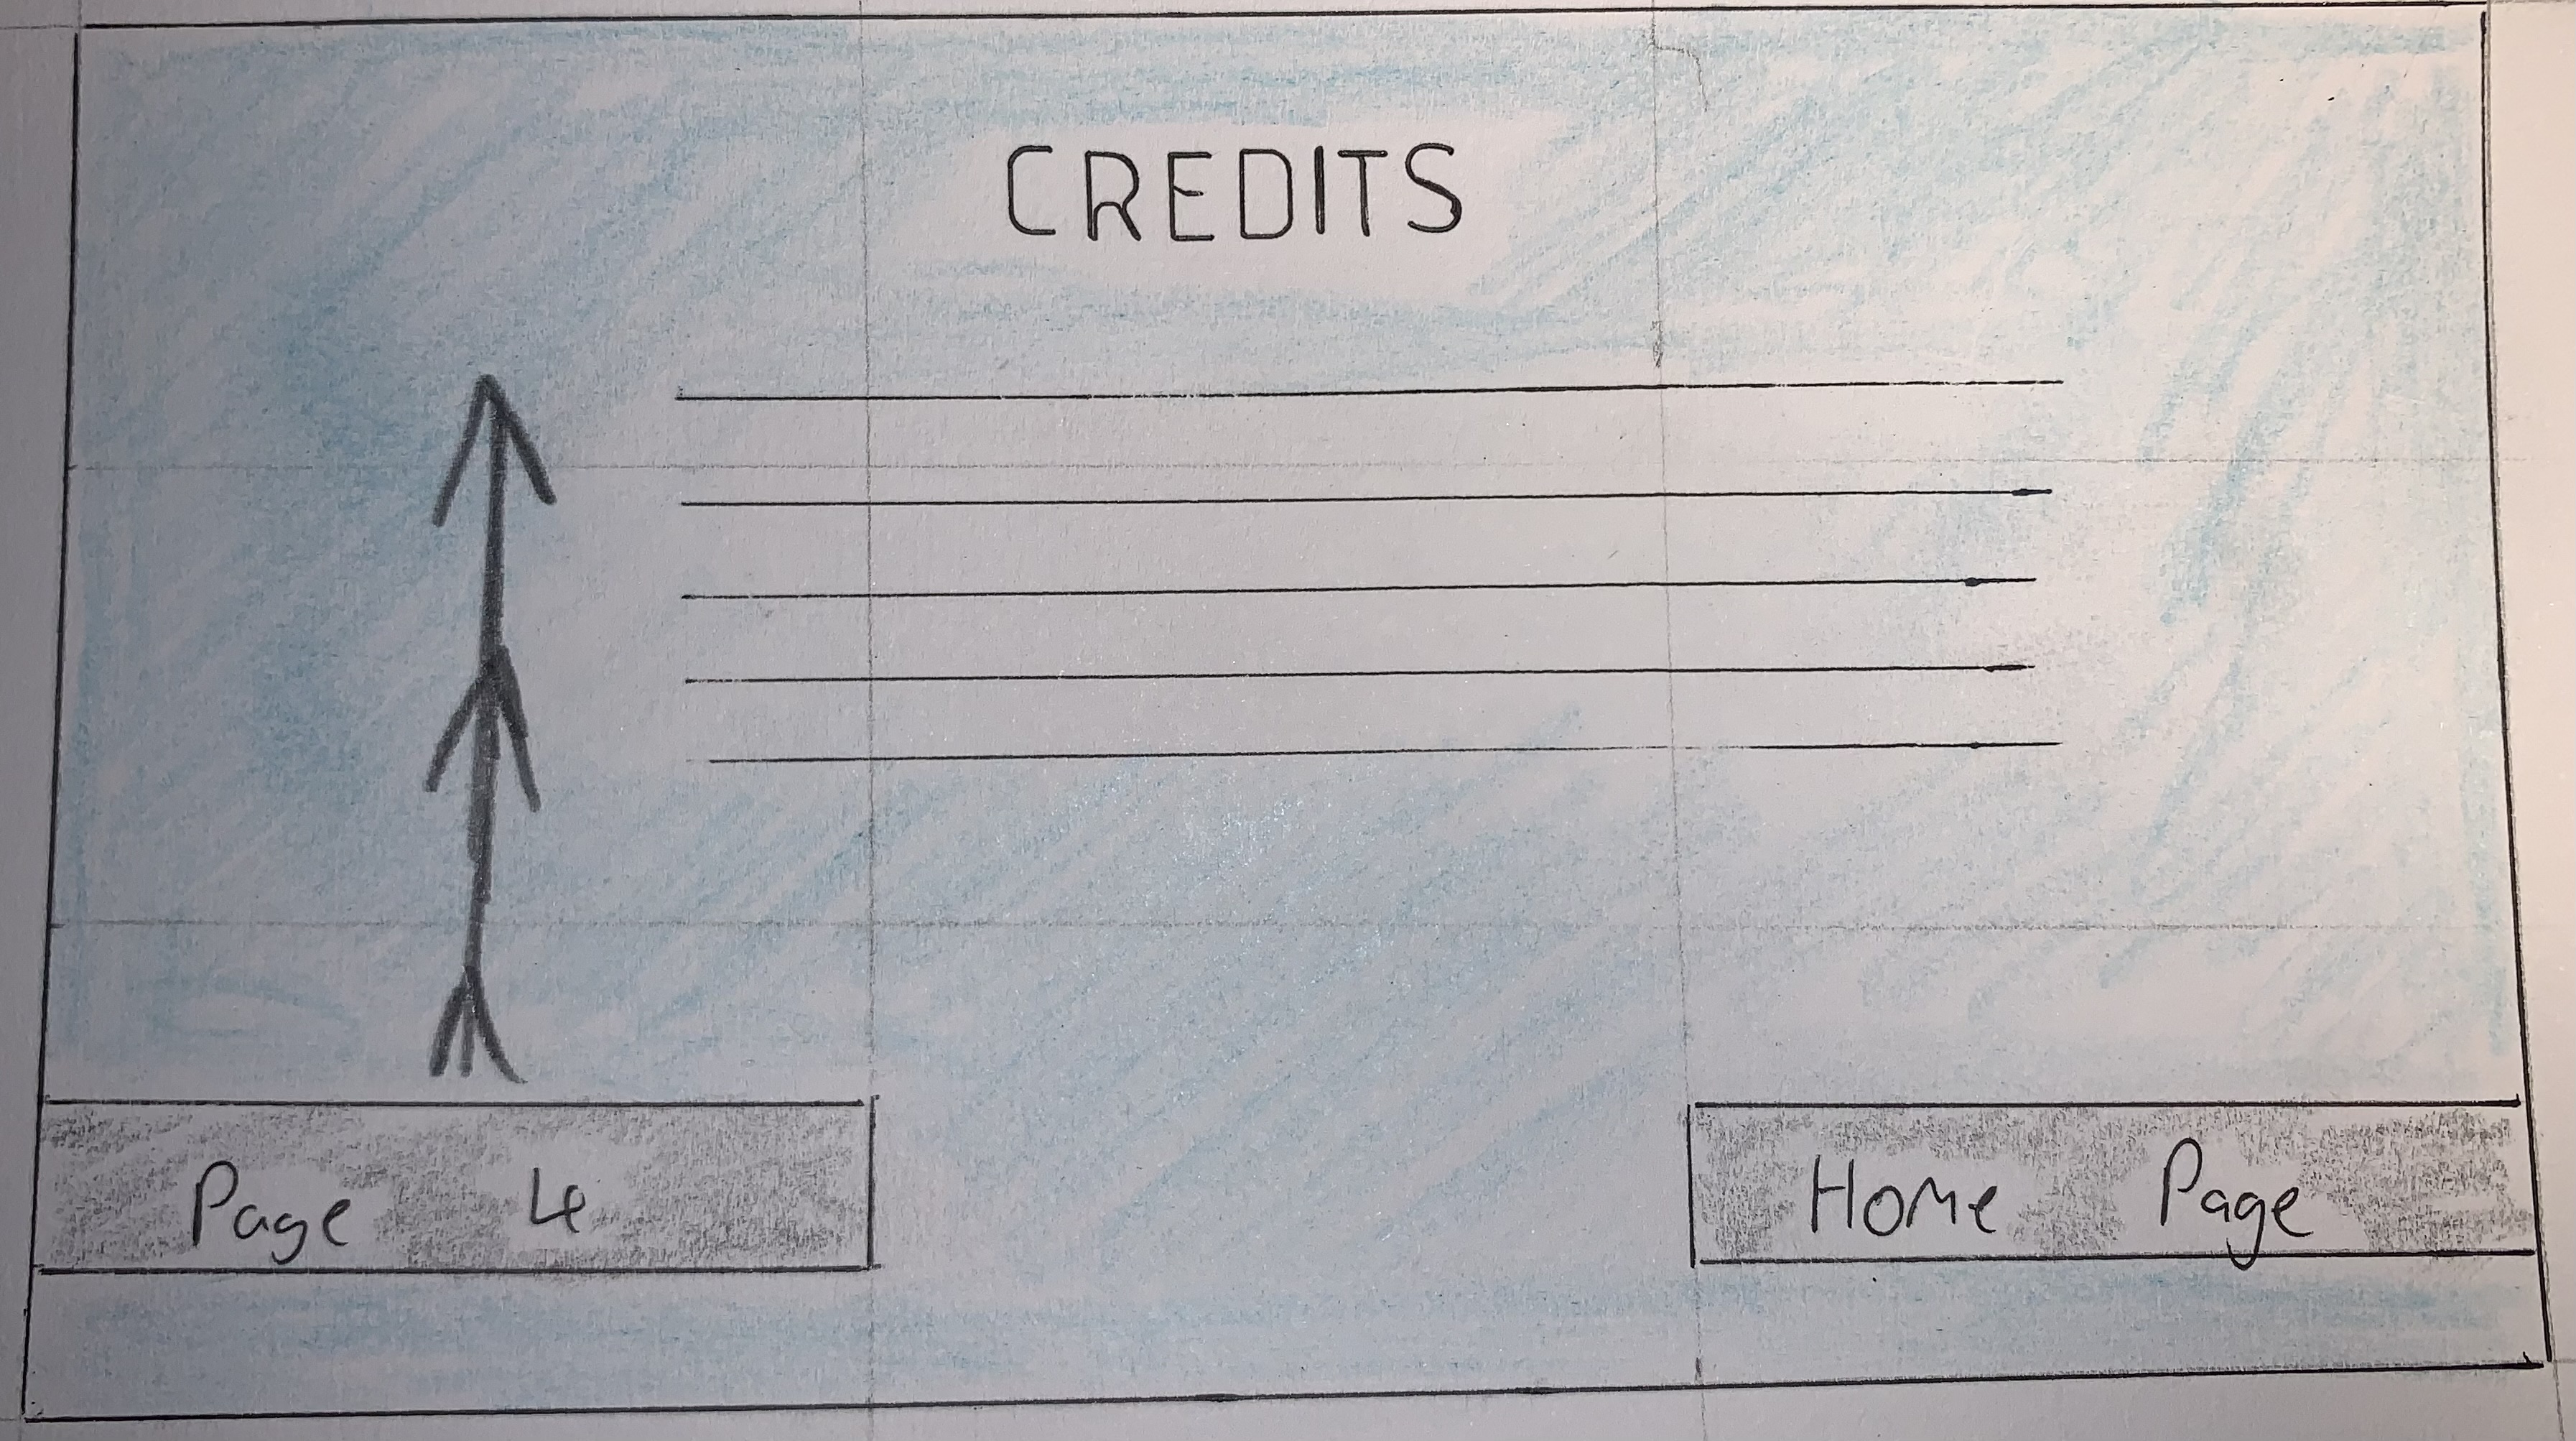 CREDITS
Page 4
Home Page